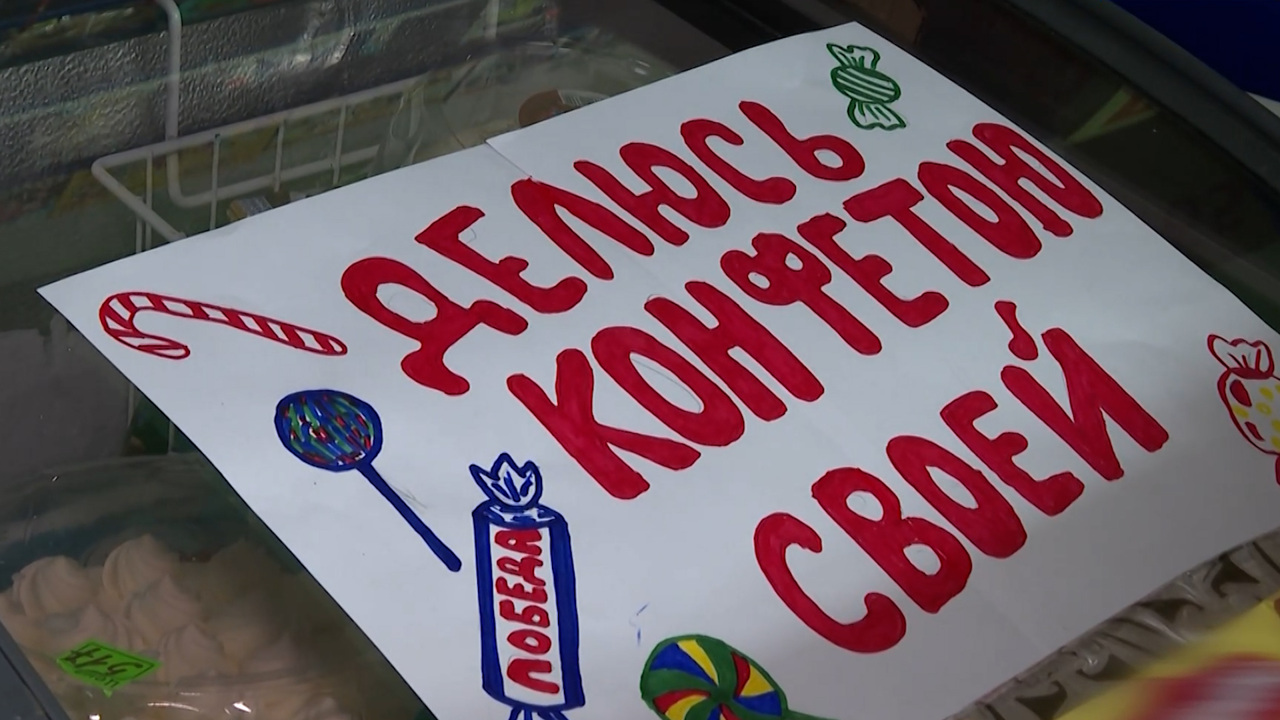 ДЕЛЮСЬ
КОНФЕТОЮ
СВОЕЙ
ПОБЕДА